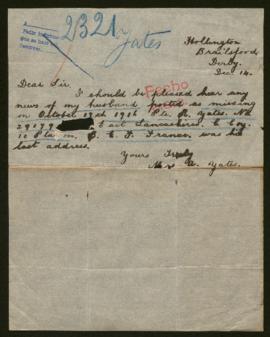 2321 Yates
Hollington
Brailsford,
Derby.
Dec 14.
Dear Sir,
I should be pleased hear any
news of my husband posted as missing
on October 19th 1916 Pte. R. Yates, No
29099 East Lancashires, C Coy.
10 Pltn. B. E. F. France, was his
last address.
Yours Truly
Mrs A. Yates.